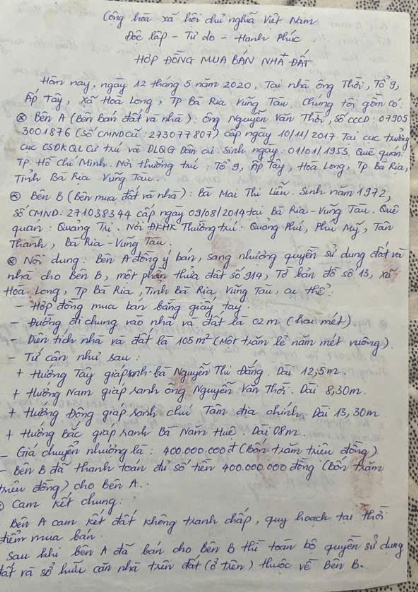 Cộng hòa xã hội chủ nghĩa Việt Nam
Độc lập - Tự do - Hạnh Phúc
HỢP ĐỒNG MUA BÁN NHÀ ĐẤT
Hôm nay, ngày 12 tháng 5 năm 2020, Tại nhà ông Thời, Tổ 9,
Ấp Tây, xã Hòa Long, Tp Bà Rịa Vũng Tàu. Chúng tôi gồm có:
⊗ Bên A (Bên bán đất và nhà): Ông Nguyễn Văn Thời, Số CCCD: 07905
3001876 (Số CMND cũ: 273077807) cấp ngày 10/11/2017 Tại cục trưởng
cục CSĐKQL Cư trú và DLQG Dân cư. Sinh ngày: 01/01/1953 Quê quán:
Tp. Hồ Chí Minh. Nơi thường trú: Tổ 9, Ấp Tây, Hòa Long, Tp Bà Rịa,
Tỉnh Bà Rịa Vũng Tàu.
⊗ Bên B (Bên mua đất và nhà): Bà Mai Thị Liễu. Sinh năm 1972,
Số CMND: 271038344 cấp ngày 09/08/2014 tại Bà Rịa - Vũng Tàu. Quê
quán: Quảng Trị. Nơi ĐKHK Thường trú: Quảng Phú, Phú Mỹ, Tân
Thành, Bà Rịa - Vũng Tàu.
⊗ Nội dung: Bên A đồng ý bán, sang nhượng quyền sử dụng đất và
nhà cho bên B, một phần thửa đất số 914, Tờ bản đồ số 13, xã
Hòa Long, Tp Bà Rịa, Tỉnh Bà Rịa Vũng Tàu. cụ thể:
- Hợp đồng mua bán bằng giấy tay.
- Đường đi chung vào nhà và đất là 02m (hai mét).
- Diện tích nhà và đất là 105m² (Một trăm lẻ năm mét vuông).
- Tứ cận như sau:
+ Hướng Tây giáp ranh là Nguyễn Thị Đăng. Dài 12,5m.
+ Hướng Nam giáp ranh ông Nguyễn Văn Thời. Dài 8,30m
+ Hướng Đông giáp ranh chú Tâm địa chính. Dài 13,30m
+ Hướng Bắc giáp ranh Bà Năm Huê. Dài 08m.
- Giá chuyển nhượng là: 400.000.000đ (Bốn trăm triệu đồng)
- Bên B đã thanh toán đủ số tiền 400.000.000 đồng (Bốn trăm
triệu đồng) cho Bên A.
Cam kết chung:
Bên A cam kết đất không tranh chấp, quy hoạch tại thời
điểm mua bán.
Sau khi bên A đã bán cho bên B thì toàn bộ quyền sử dụng
đất và sở hữu căn nhà trên đất (ở trên) thuộc về Bên B.